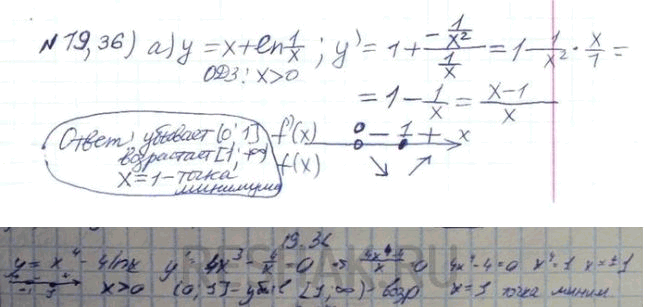 № 19,36) а) y = x + ln 1/x ; y' = 1 + (-1/x²)/(1/x) = 1 - 1/x² · x/1 =
ОДЗ: x>0
= 1 - 1/x = (x-1)/x
Ответ: убывает (0; 1]
возрастает [1; +∞)
x = 1 - точка
минимума
f'(x) 0 - 1 + x
f(x) ↘ ↗
19.36
y = x⁴ - 4lnx y' = 4x³ - 4/x = 0 4x⁴-4/x = 0 4x⁴-4=0 x⁴=1 x=±1
x>0 (0, 1] - убыв [1; ∞) - возр x=1 точка миним
RESHAK.RU